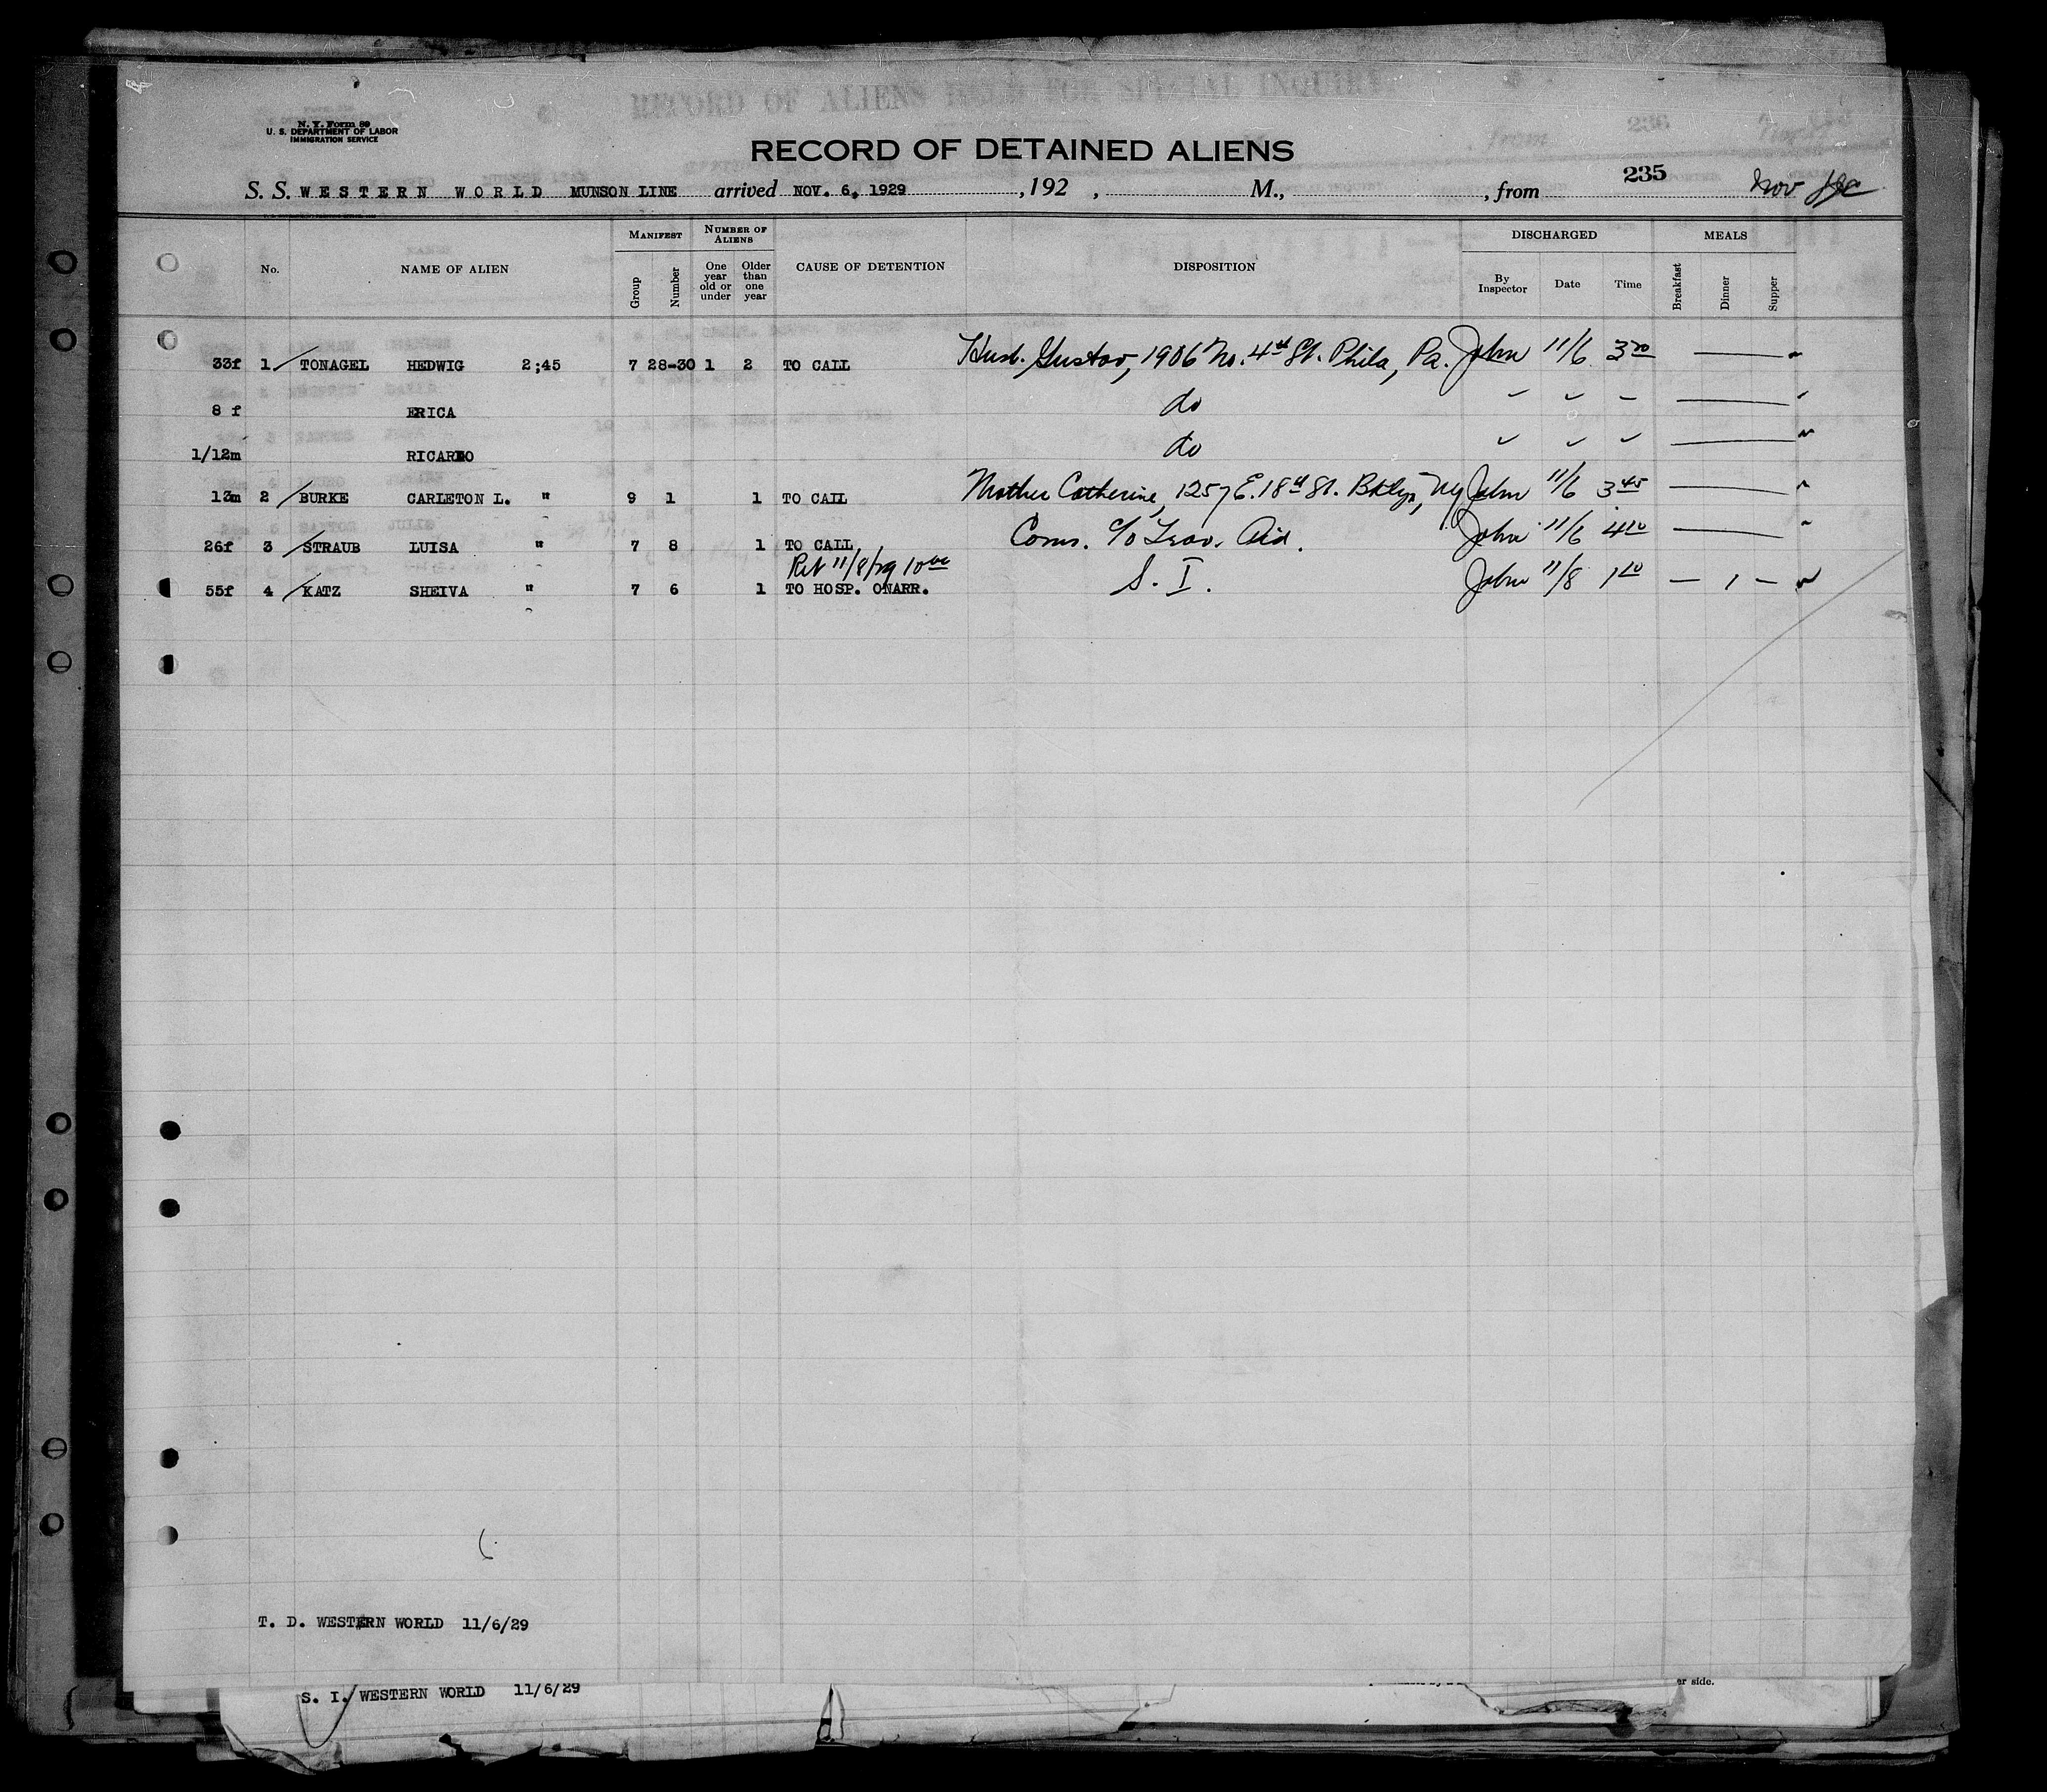 N. Y. Form 89
U. S. DEPARTMENT OF LABOR
IMMIGRATION SERVICE
RECORD OF ALIENS HELD FOR SPECIAL INQUIRY
236
from
RECORD OF DETAINED ALIENS
235
S. S. WESTERN WORLD MUNSON LINE arrived NOV. 6, 1929 , 192 , M., , from Nov
No. NAME OF ALIEN MANIFEST NUMBER OF ALIENS CAUSE OF DETENTION DISPOSITION DISCHARGED MEALS
Group Number One year old or under Older than one year By Inspector Date Time Breakfast Dinner Supper
33f 1 TONAGEL HEDWIG 2;45 7 28-30 1 2 TO CALL Husb. Gustav, 1906 No. 4th St. Phila, Pa. John 11/6 3 20
8 f ERICA do
1/12m RICARDO do
13m 2 BURKE CARLETON L. " 9 1 1 TO CALL Mother Catherine, 1257 E. 18th St. Bklyn, Ny John 11/6 3 45
26f 3 STRAUB LUISA " 7 8 1 TO CALL Cons. c/o Trav. Aid. John 11/6 4 10
Ret 11/8/29 10 00
55f 4 KATZ SHEIVA " 7 6 1 TO HOSP. ONARR. S. I. John 11/8 1 10 — 1 —
T. D. WESTERN WORLD 11/6/29
S. I. WESTERN WORLD 11/6/29
er side.